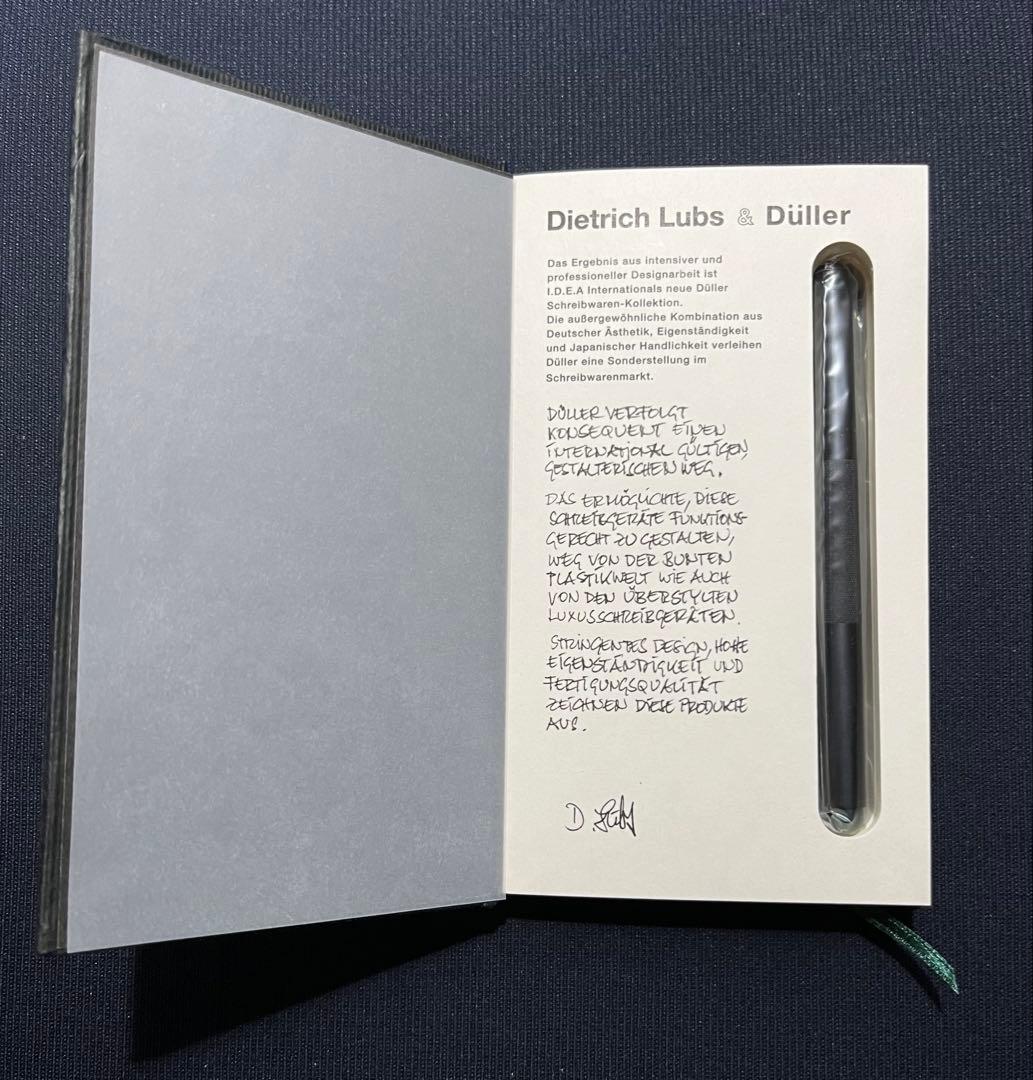 Dietrich Lubs & Düller
Das Ergebnis aus intensiver und
professioneller Designarbeit ist
I.D.E.A Internationals neue Düller
Schreibwaren-Kollektion.
Die außergewöhnliche Kombination aus
Deutscher Ästhetik, Eigenständigkeit
und Japanischer Handlichkeit verleihen
Düller eine Sonderstellung im
Schreibwarenmarkt.
DÜLLER VERFOLGT
KONSEQUENT EINEN
INTERNATIONAL GÜLTIGEN,
GESTALTERISCHEN WEG.
DAS ERMÖGLICHTE, DIESE
SCHREIBGERÄTE FUNKTIONS-
GERECHT ZU GESTALTEN,
WEG VON DER BUNTEN
PLASTIKWELT WIE AUCH
VON DEN ÜBERSTYLTEN
LUXUSSCHREIBGERÄTEN.
STRINGENTES DESIGN, HOHE
EIGENSTÄNDIGKEIT UND
FERTIGUNGSQUALITÄT
ZEICHNEN DIESE PRODUKTE
AUS.
D. Lubs